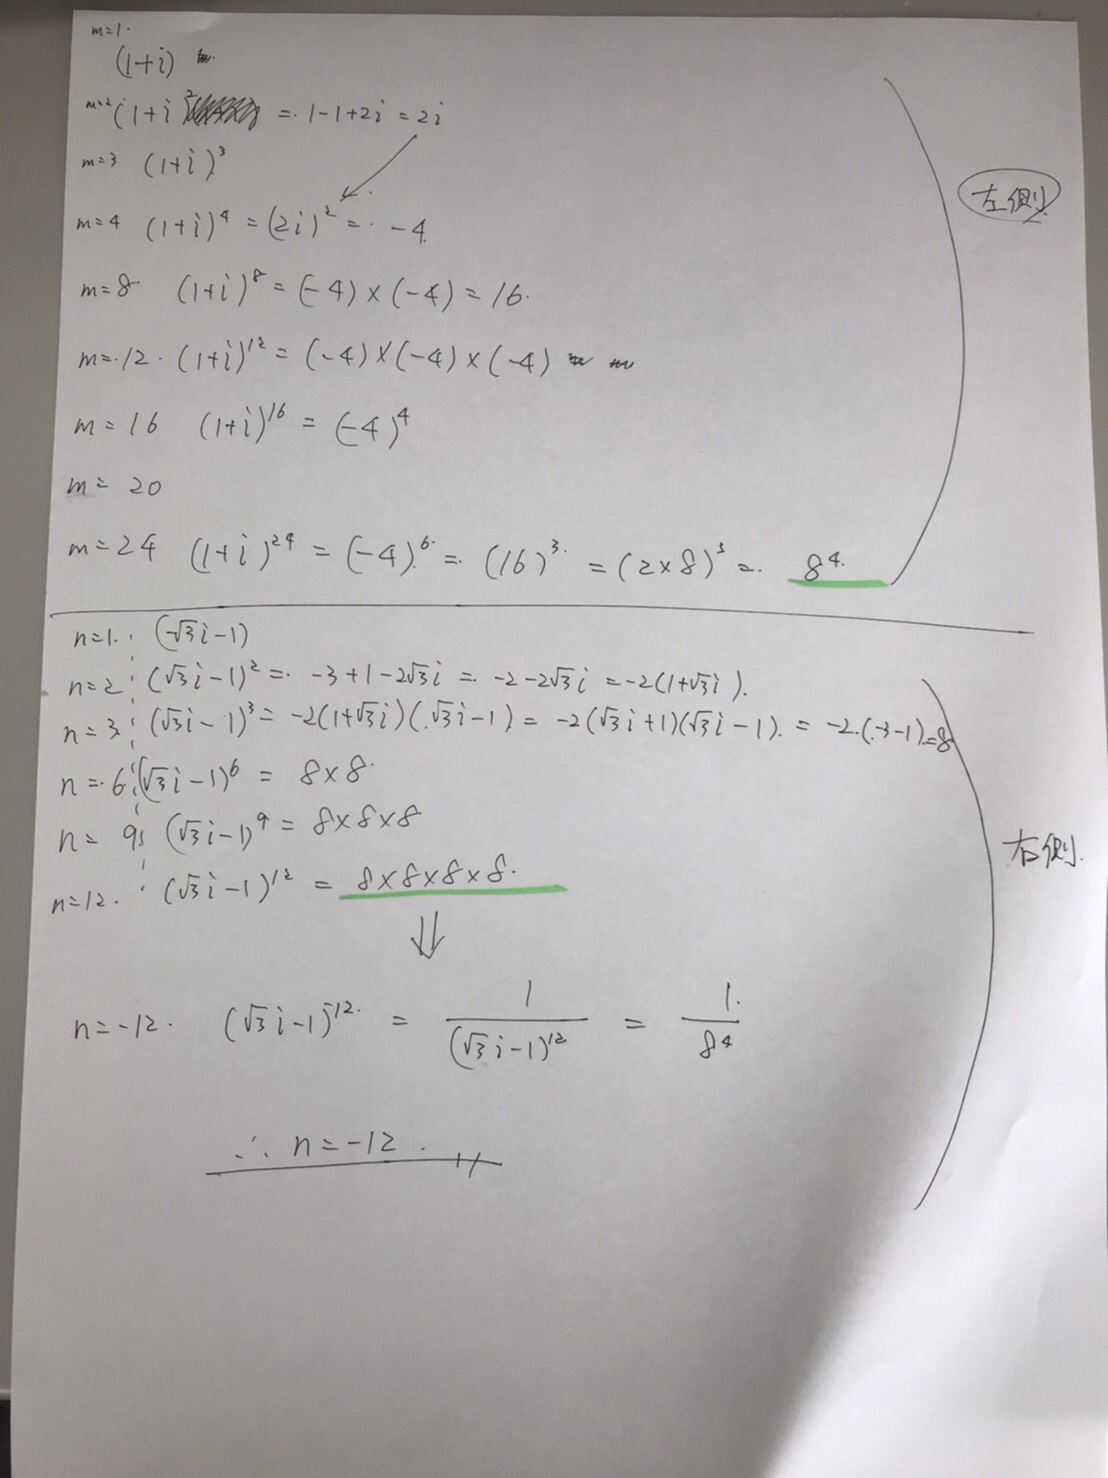 m=1.
(1+i)
m=2 (1+i)² = 1-1+2i = 2i
m=3 (1+i)³
m=4 (1+i)⁴ = (2i)² = -4
m=8 (1+i)⁸ = (-4)×(-4) = 16.
m=12. (1+i)¹² = (-4)×(-4)×(-4)
m=16 (1+i)¹⁶ = (-4)⁴
m=20
m=24 (1+i)²⁴ = (-4)⁶ = (16)³ = (2×8)³ = 8⁴
左側
n=1. (√3i-1)
n=2 (√3i-1)² = -3+1-2√3i = -2-2√3i = -2(1+√3i).
n=3 (√3i-1)³ = -2(1+√3i)(√3i-1) = -2(√3i+1)(√3i-1) = -2(-3-1)=8
n=6 (√3i-1)⁶ = 8×8
n=9 (√3i-1)⁹ = 8×8×8
n=12. (√3i-1)¹² = 8×8×8×8
右側
⇓
n=-12. (√3i-1)⁻¹² = 1/(√3i-1)¹² = 1/8⁴
∴ n=-12.